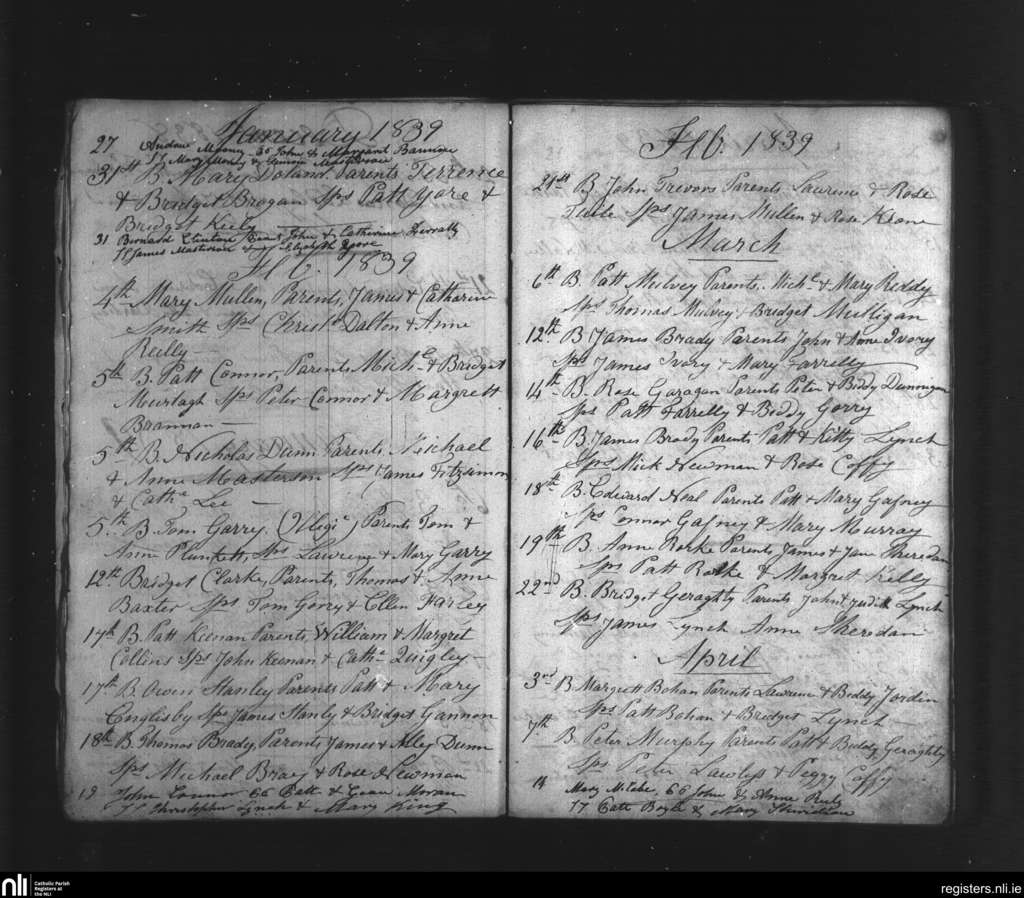 January 1839
27 Andrew Mooney 36 John & Margaret Bannon
SS Mary Monty & Simon Masterson
31st B Mary Doland Parents Terrence
& Bridget Brogan Sps Patt Yore &
Bridget Keely
31. Bernard Clinton Bernd John & Catherine
SS James Masterson & Elizabeth Yore
Feb. 1839
4th Mary Mullen, Parents, James & Catharine
Smith Sps Christr Dalton & Anne
Reilly
5th B. Patt Connor, Parents, Michl & Bridget
Murtagh Sps Peter Connor & Margrett
Brannan
5th B. Nicholas Dunn Parents Michael
& Anne Masterson Sps James Fitzsimon
& Cathe Lee
5th B. Tom Garry (Illegi) Parents Tom &
Anne Plunkett, Sps Lawrence & Mary Garry
12th Bridget Clarke, Parents, Thomas & Anne
Baxter Sps Tom Gorry & Ellen Farley
17th B. Patt Keenan Parents, William & Margret
Collins Sps John Keenan & Cathe Quigley
17th B. Owen Stanley Parents Patt & Mary
Englisby Sps James Stanly & Bridget Gannon
18th B. Thomas Brady, Parents James & Alley Dunn
Sps Michael Brady & Rose Newman
19 John Connor 66 Patt & Moran
SS Christopher Lynch & Mary King
Feb. 1839
21st B John Trevors Parents Lawrence & Rose
Tuite Sps James Mullen & Rose Keone
March
6th B. Patt Mulvey Parents, Michl & Mary Reddy
Sps Thomas Mulvey & Bridget Mulligan
12th B James Brady Parents John & Anne Ivory
Sps James Ivory & Mary Farrelly
14th B. Rose Garagan Parents Peter & Biddy Dunnigan
Sps Patt Farrelly & Biddy Gorry
16th B. James Brady Parents Patt & Kitty Lynch
Sps Mick Newman & Rose Coffy
18th B. Edward Neal Parents Patt & Mary Gafney
Sps Connor Gafney & Mary Murray
19th B. Anne Rorke Parents James & Jane Sheredan
Sps Patt Rorke & Margret Kelly
22nd B. Bridget Geraghty Parents John & Judith Lynch
Sps James Lynch Anne Sheredan
April
3rd B Margrett Bohan Parents Lawrence & Biddy Jordin
Sps Patt Bohan & Bridget Lynch
7th B. Peter Murphy Parents Patt & Biddy Geraghty
Sps Peter Lawless & Peggy Coffy
14 Mary McCabe, 66 John & Anne
17 Patt Boyle & Mary
nli
Catholic Parish
Registers at
the NLI
registers.nli.ie